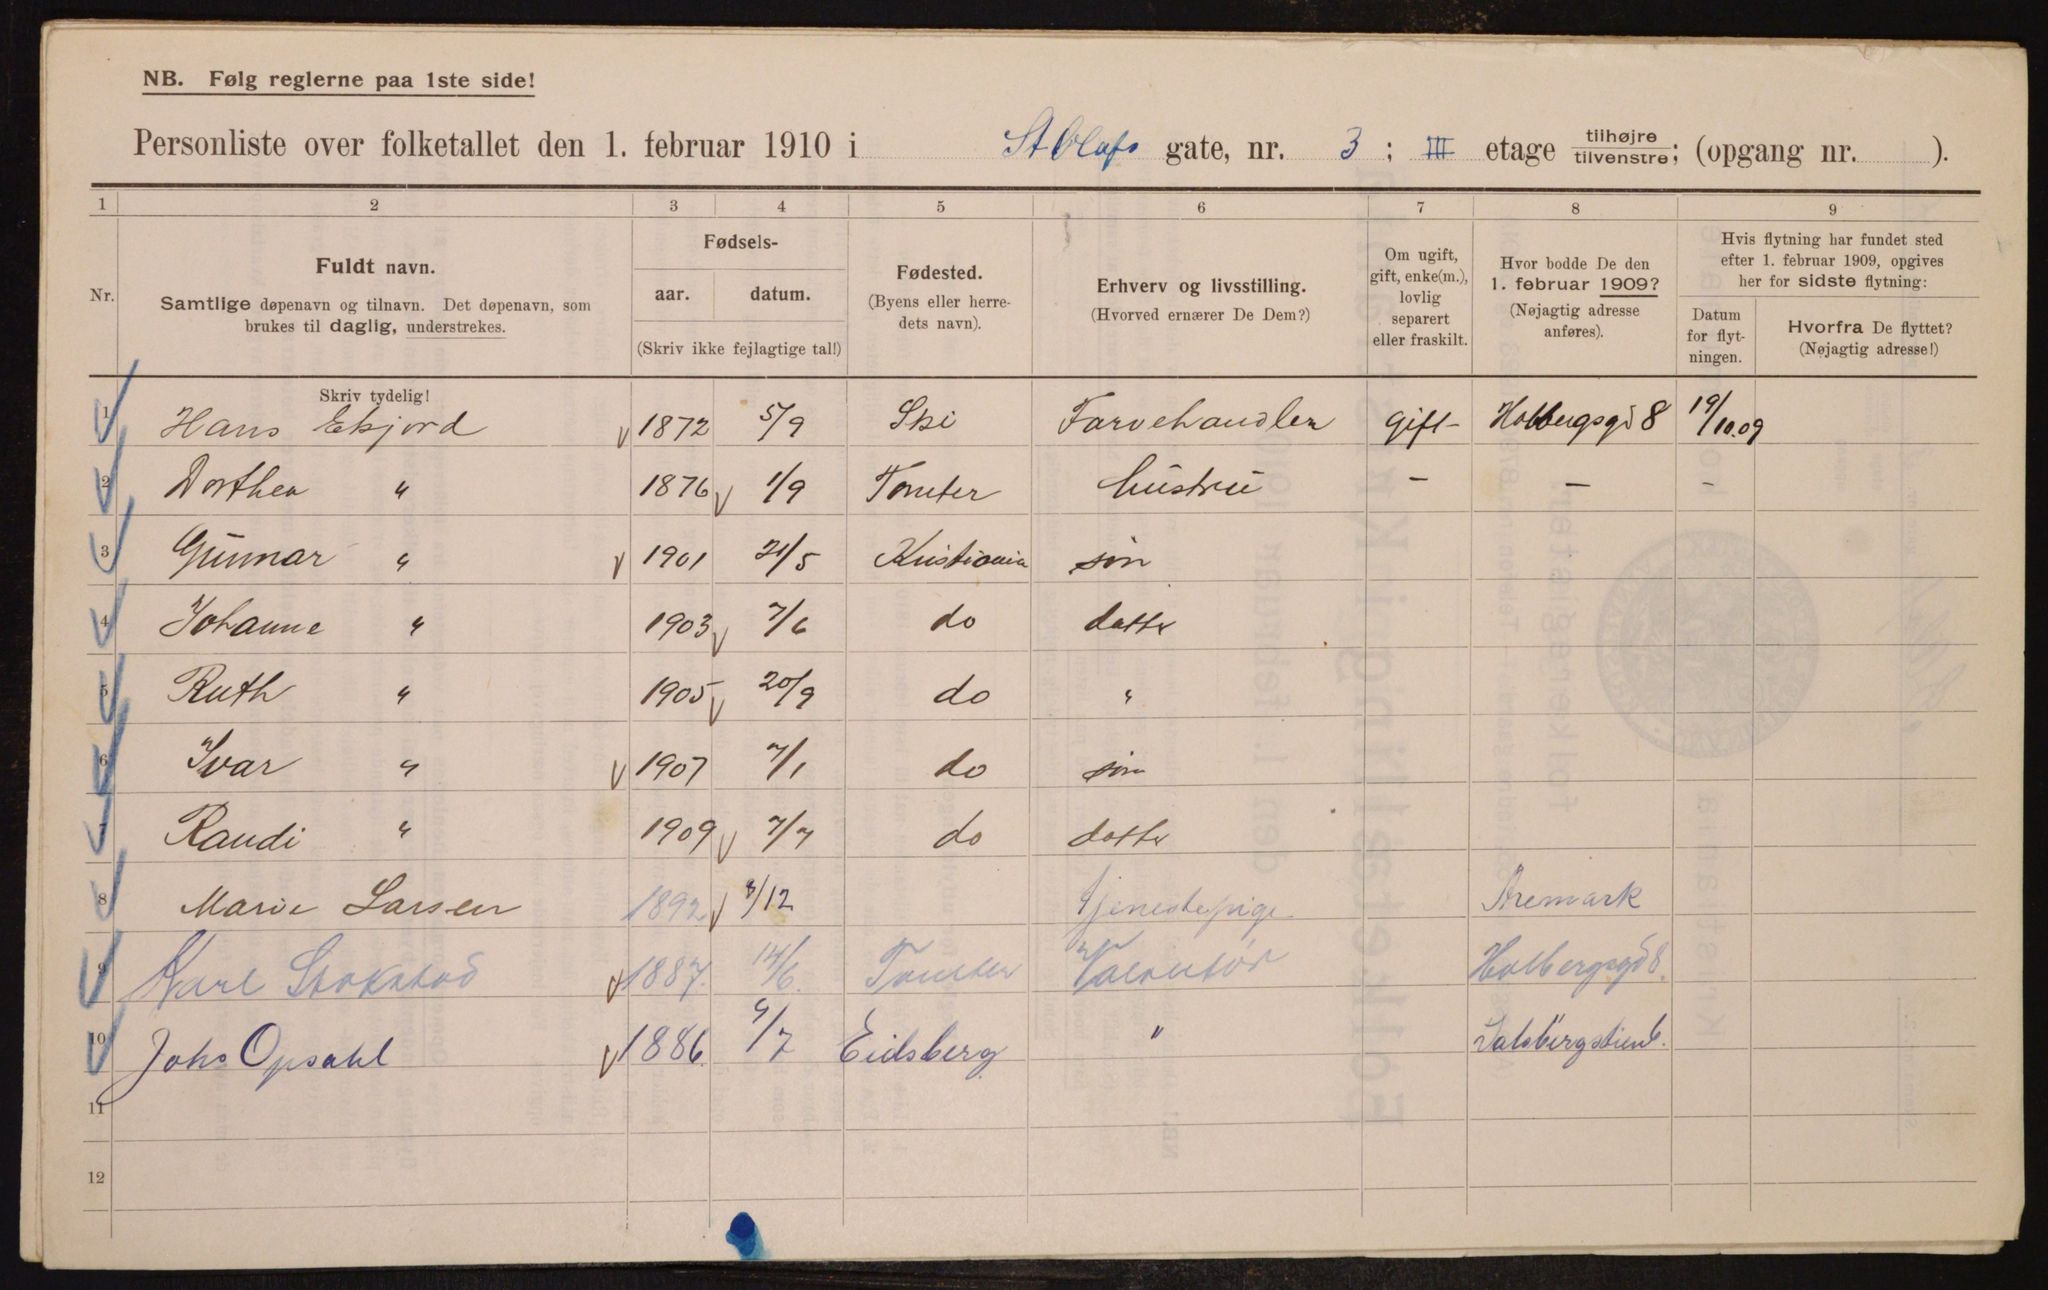 NB. Følg reglerne paa 1ste side!
Personliste over folketallet den 1. februar 1910 i St Olafs gate, nr. 3 ; III etage tilhøjre tilvenstre; (opgang nr. ).
1 2 3 4 5 6 7 8 9
Nr.
Fuldt navn.
Samtlige døpenavn og tilnavn. Det døpenavn, som
brukes til daglig, understrekes.
Fødsels-
aar. datum.
(Skriv ikke fejlagtige tal!)
Fødested.
(Byens eller herre-
dets navn).
Erhverv og livsstilling.
(Hvorved ernærer De Dem?)
Om ugift,
gift, enke(m.),
lovlig
separert
eller fraskilt.
Hvor bodde De den
1. februar 1909?
(Nøjagtig adresse
anføres).
Hvis flytning har fundet sted
efter 1. februar 1909, opgives
her for sidste flytning:
Datum
for flyt-
ningen.
Hvorfra De flyttet?
(Nøjagtig adresse!)
Skriv tydelig!
1 Hans Ekjord 1872 5/9 Ski Farvehandler gift Holbergsgd 8 19/10.09
2 Dorthea " 1876 1/9 Tomter hustru – – –
3 Gunnar " 1901 21/5 Kristiania søn
4 Johanne " 1903 7/6 do datter
5 Ruth " 1905 20/9 do "
6 Ivar " 1907 7/1 do søn
7 Randi " 1909 7/7 do datter
8 Marie Larsen 1892 /12 tjenestepige Aremark
9 Karl Stokstad 1887. 14/6. Tomter Holbergsgd 8.
10 Johs Opsahl 1886. 9/7 Eidsberg "
11
12